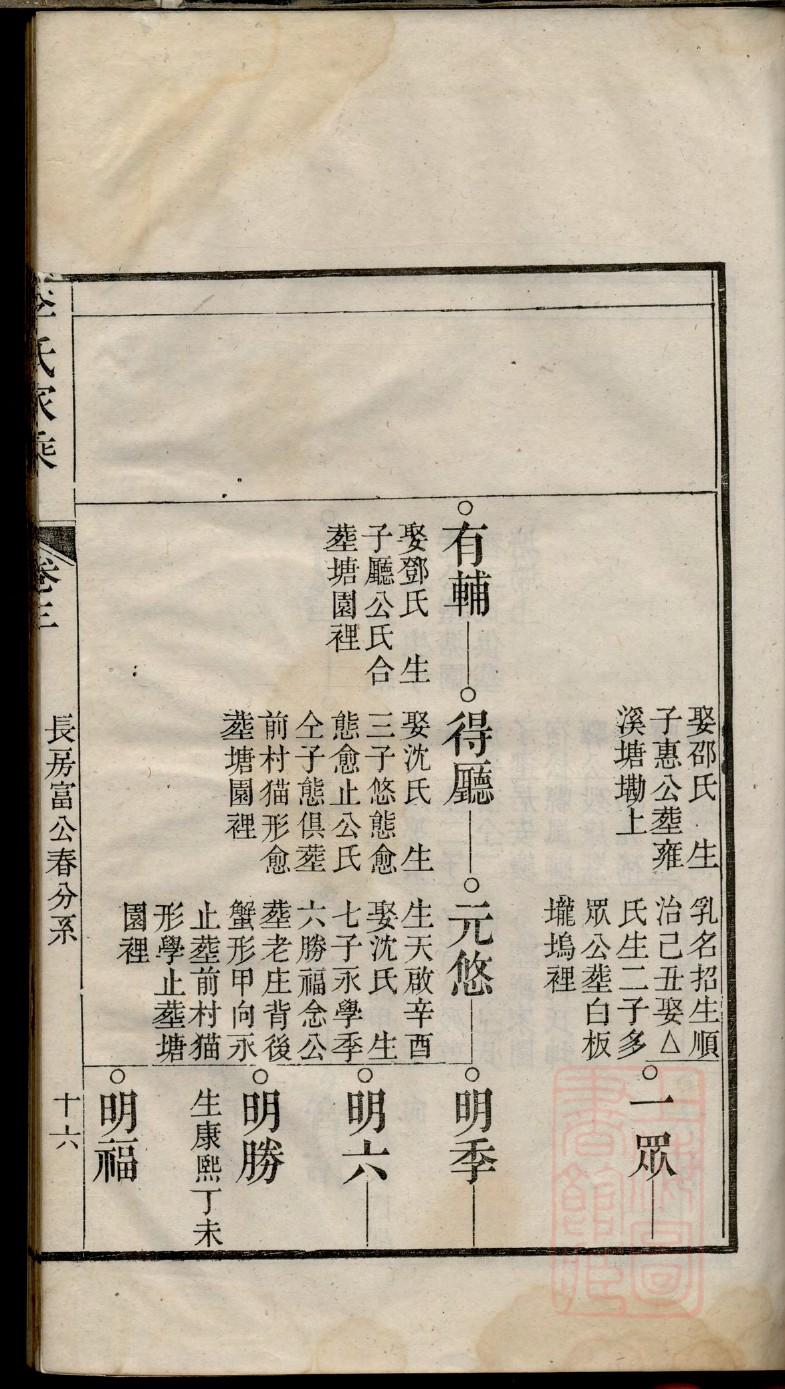 娶邵氏　生
子惠公塟雍
溪塘墈上
乳名招生順
治己丑娶△
氏生二子多
眾公塟白板
壠塢裡
一眾
有輔
娶鄧氏　生
子廳公氏合
塟塘園裡
得廳
娶沈氏　生
三子悠態愈
態愈止公氏
仝子態俱塟
前村猫形愈
塟塘園裡
元悠
生天啟辛酉
娶沈氏　生
七子永學季
六勝福念公
塟老庄背後
蟹形甲向永
止塟前村猫
形學止塟塘
園裡
明季
明六
明勝
生康熙丁未
明福
李氏家乘
卷三
長房富公春分系
十六